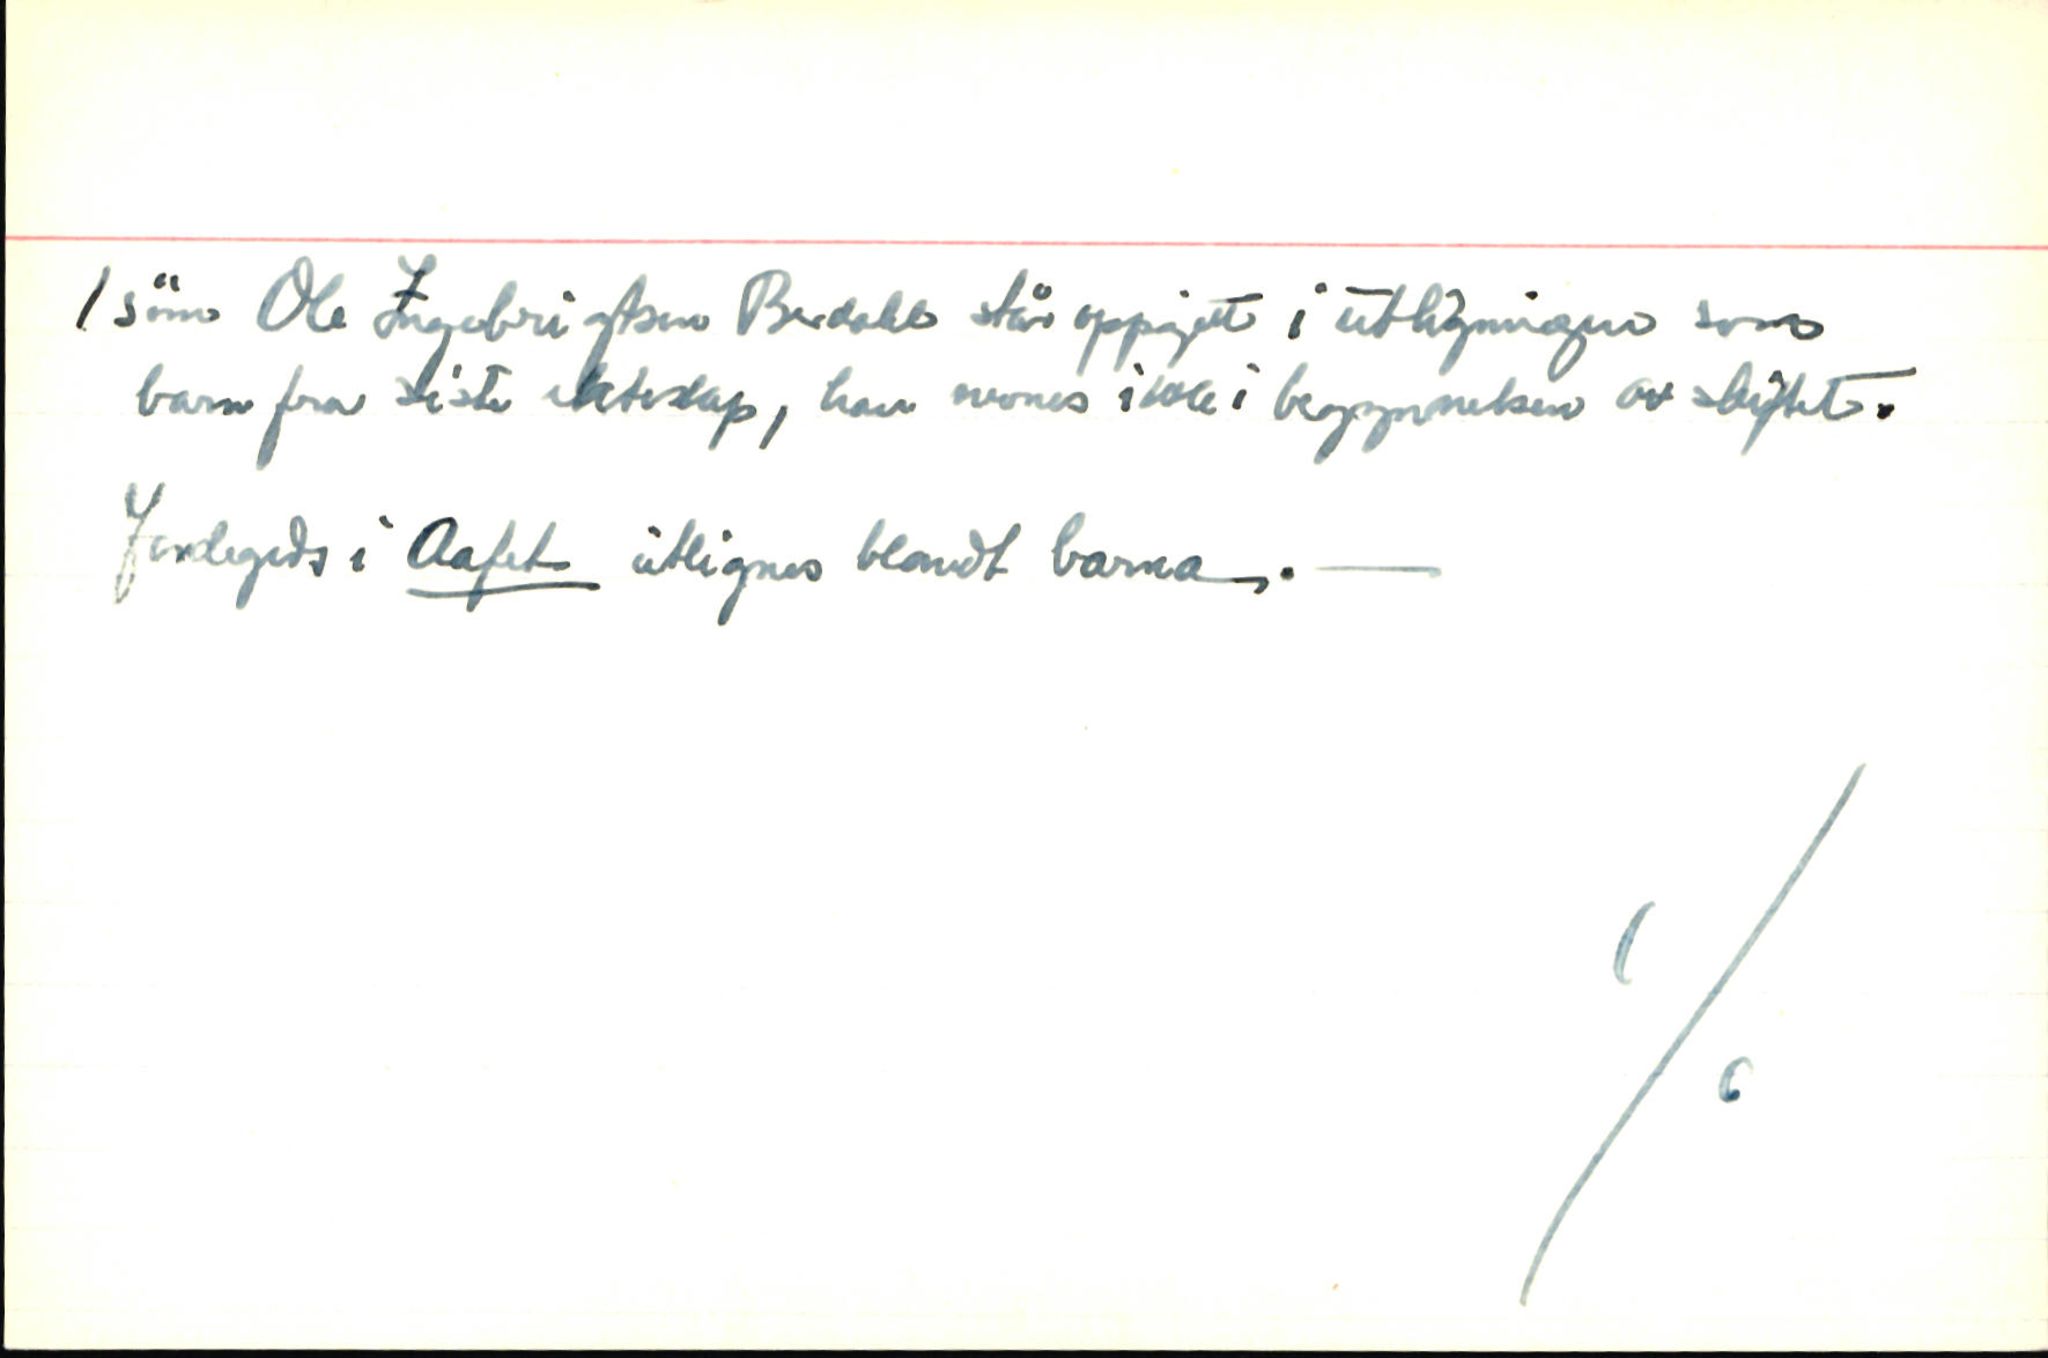 1 sön Ole Ingebrigtsen Berdahl står oppgett i utligningen som
barn fra siste ekteskap, han nevnes ikke i begynnelsen av skiftet.
Jordegods i Aafet utlignes blandt barna. —
1/6